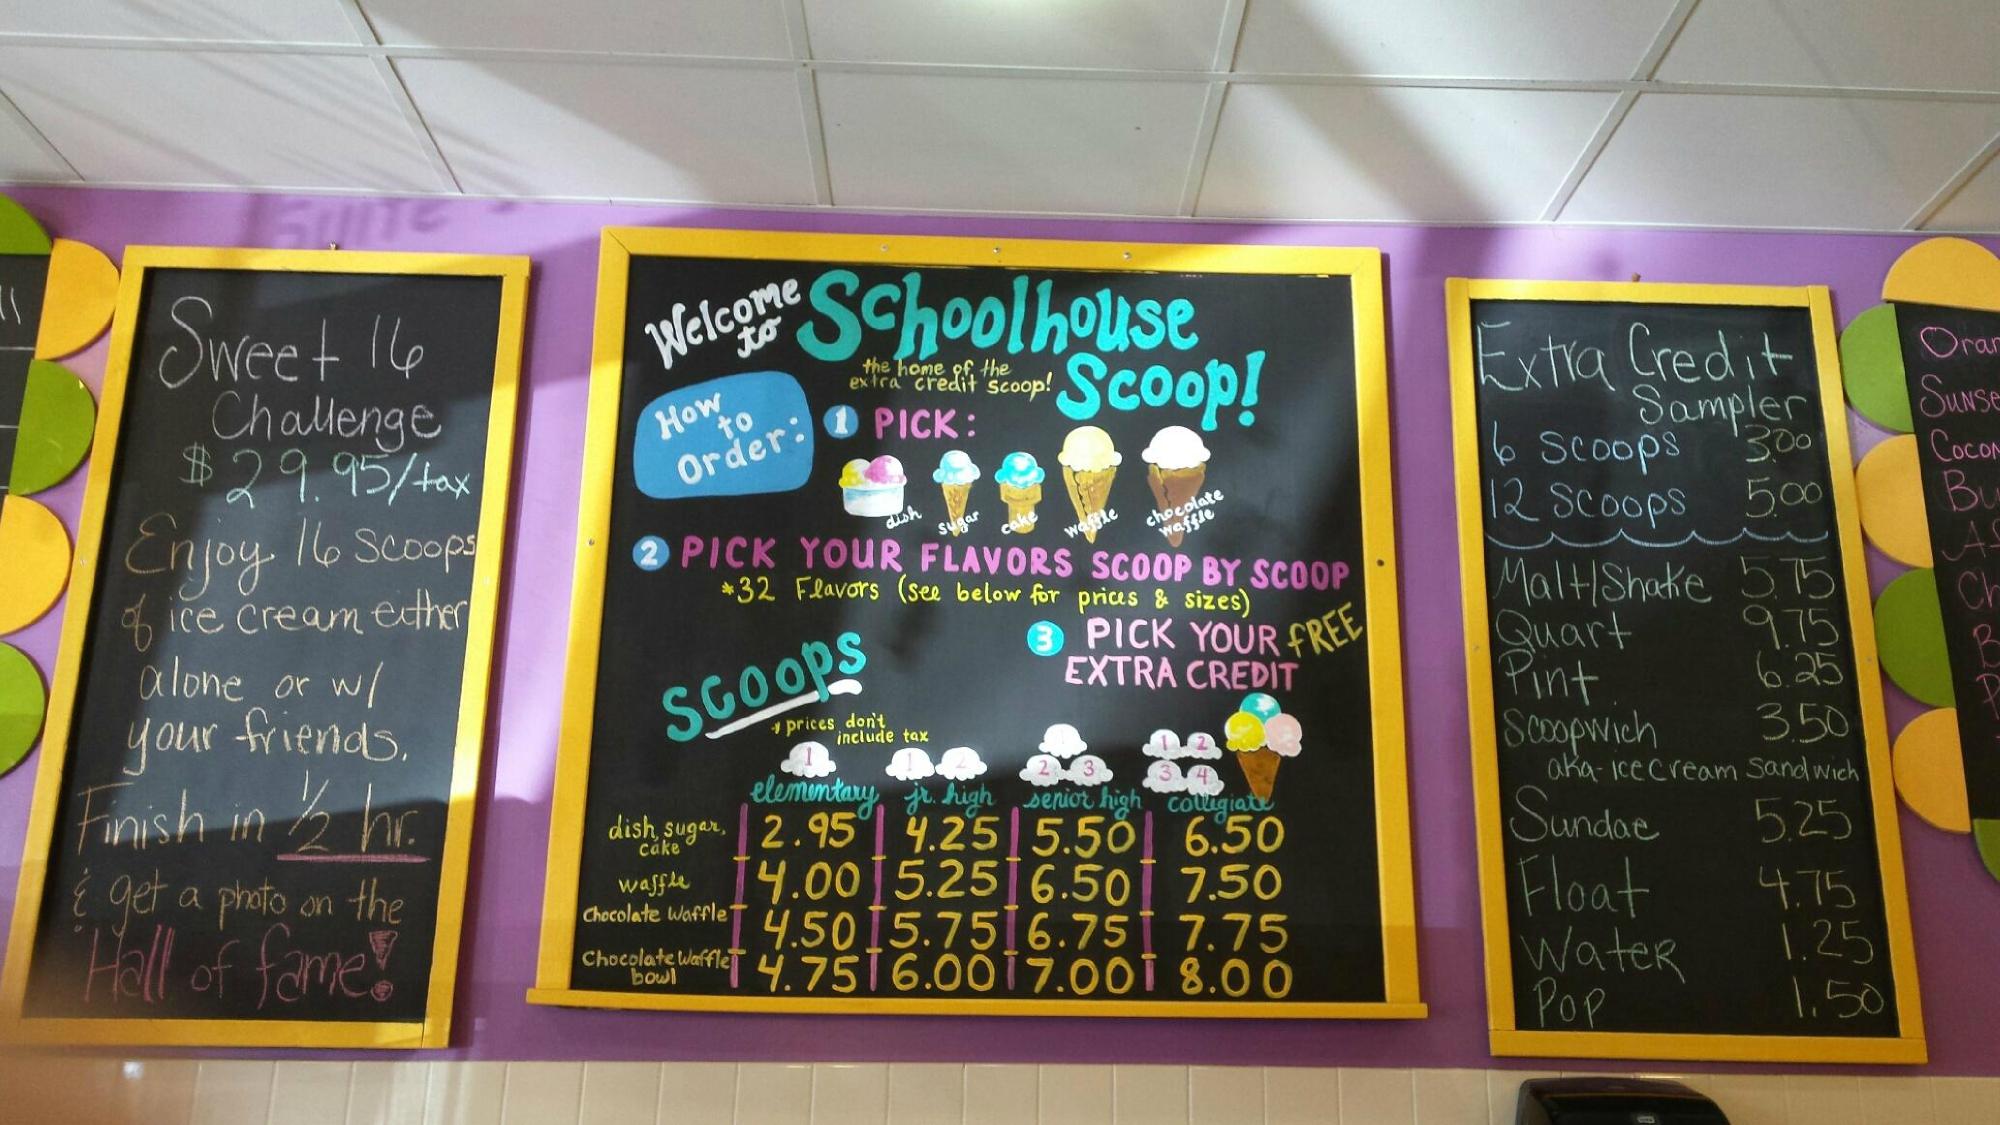 Sweet 16
Challenge
$29.95/tax
Enjoy 16 scoops
of ice cream either
alone or w/
your friends.
Finish in 1/2 hr.
& get a photo on the
Hall of fame!
Welcome to Schoolhouse Scoop!
the home of the
extra credit scoop!
How to Order:
1 PICK:
dish sugar cake waffle chocolate waffle
2 PICK YOUR FLAVORS SCOOP BY SCOOP
*32 Flavors (see below for prices & sizes)
3 PICK YOUR FREE
EXTRA CREDIT
SCOOPS
* prices don't
include tax
1 1 2 1 2 3 1 2 3 4
elementary jr. high senior high collegiate
dish, sugar, cake 2.95 4.25 5.50 6.50
waffle 4.00 5.25 6.50 7.50
Chocolate Waffle 4.50 5.75 6.75 7.75
Chocolate Waffle bowl 4.75 6.00 7.00 8.00
Extra Credit
Sampler
6 scoops 3.00
12 scoops 5.00
Malt/Shake 5.75
Quart 9.75
Pint 6.25
Scoopwich 3.50
aka-ice cream sandwich
Sundae 5.25
Float 4.75
Water 1.25
Pop 1.50